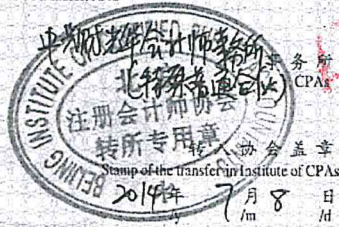 中兴财光华会计师事务所
(特殊普通合伙)
事务所
CPAs
BEIJING INSTITUTE OF CERTIFIED
北
注册会计师协会
转所专用章
转入协会盖章
Stamp of the transfer-in Institute of CPAs
2014年 7月 8日
/y /m /d